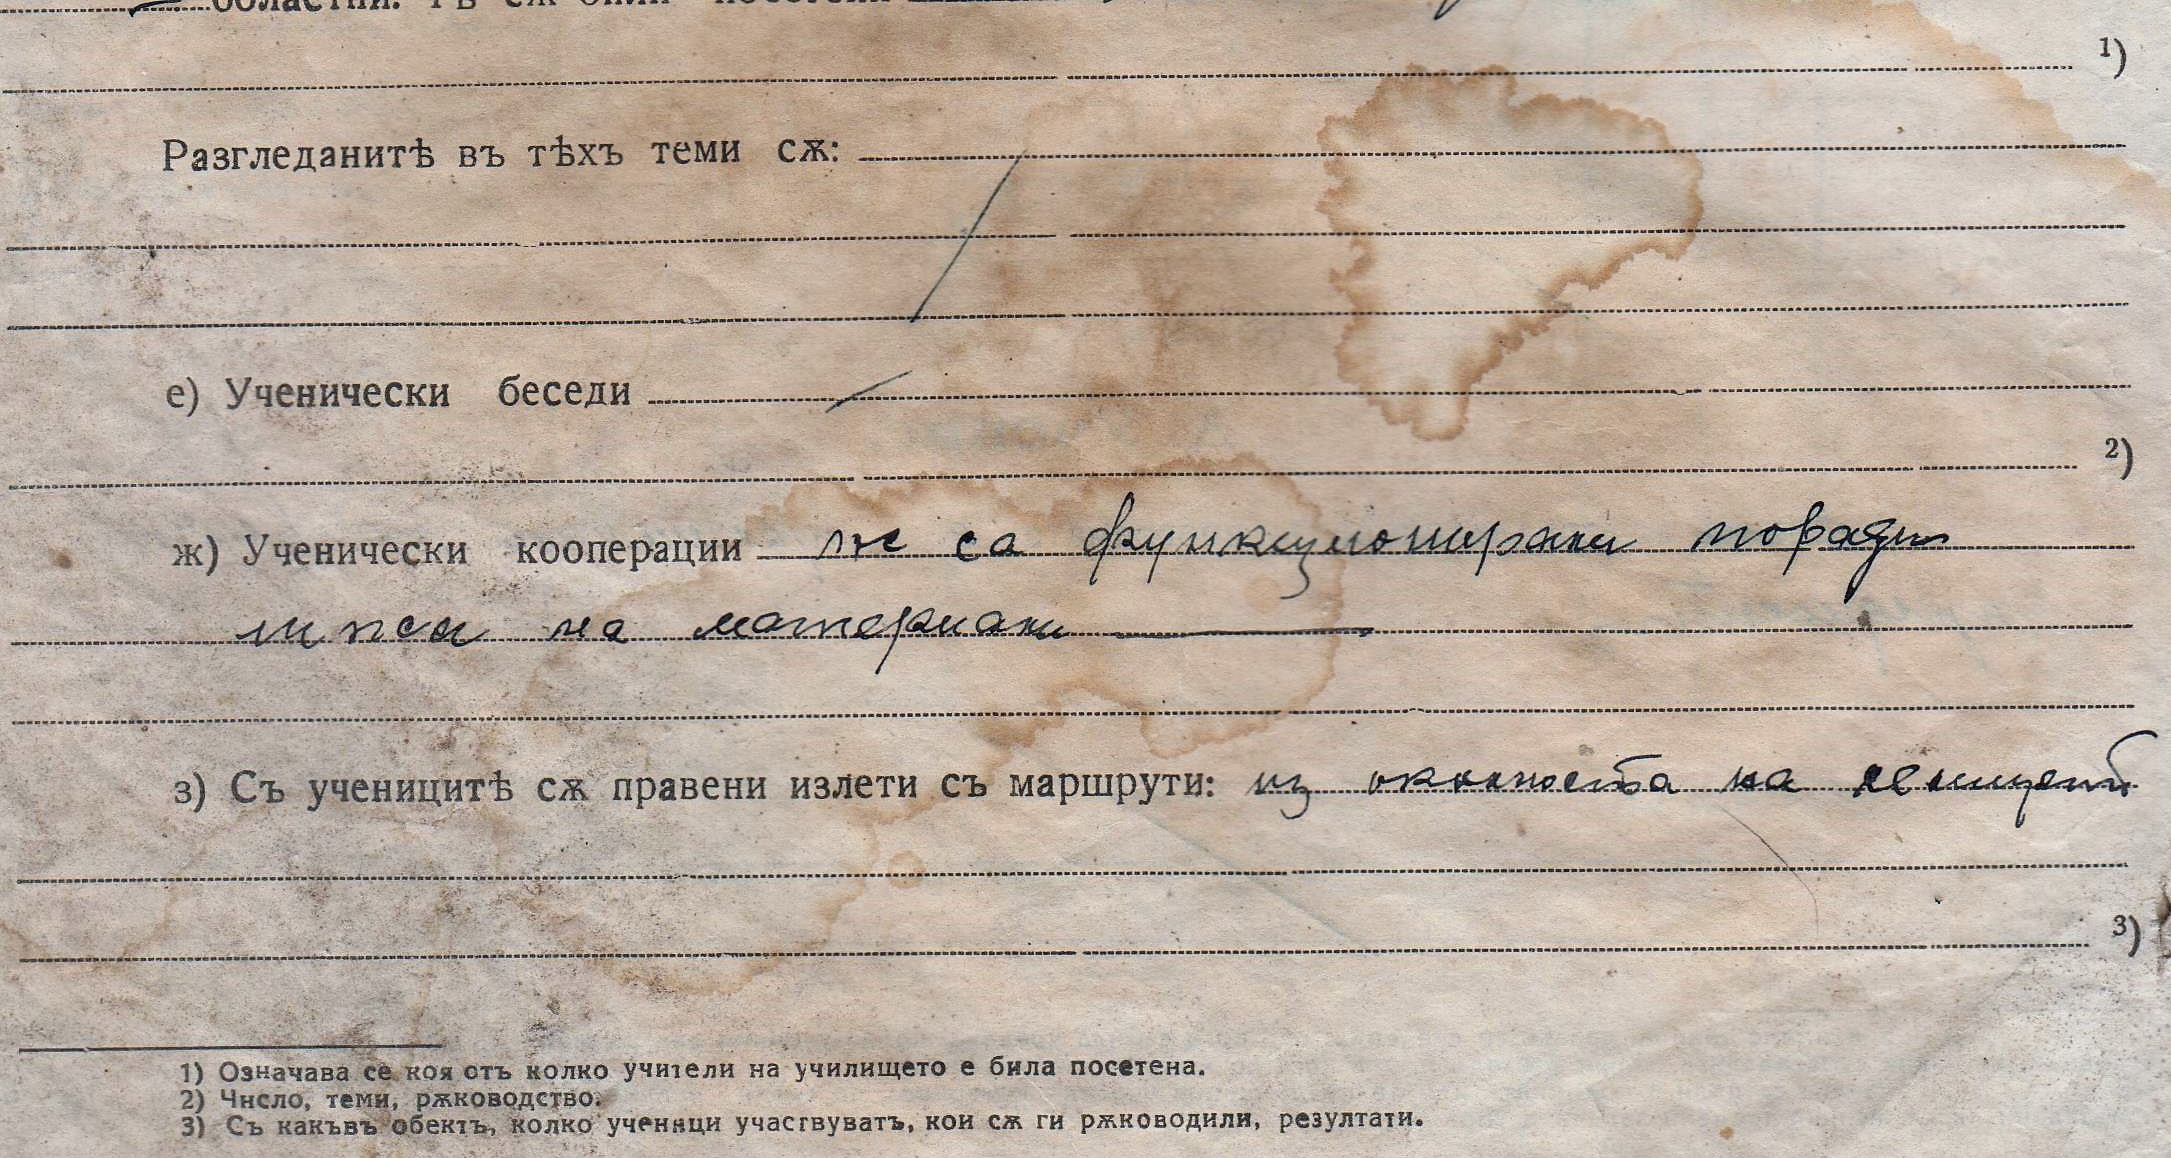 областни. Тѣ сѫ били посетени
1)
Разгледанитѣ въ тѣхъ теми сѫ:
е) Ученически беседи
2)
ж) Ученически кооперации не са функционирали поради
липса на материали
з) Съ ученицитѣ сѫ правени излети съ маршрути: из околността на селището
3)
1) Означава се коя отъ колко учители на училището е била посетена.
2) Число, теми, рѫководство.
3) Съ какъвъ обектъ, колко ученици участвуватъ, кои сѫ ги рѫководили, резултати.